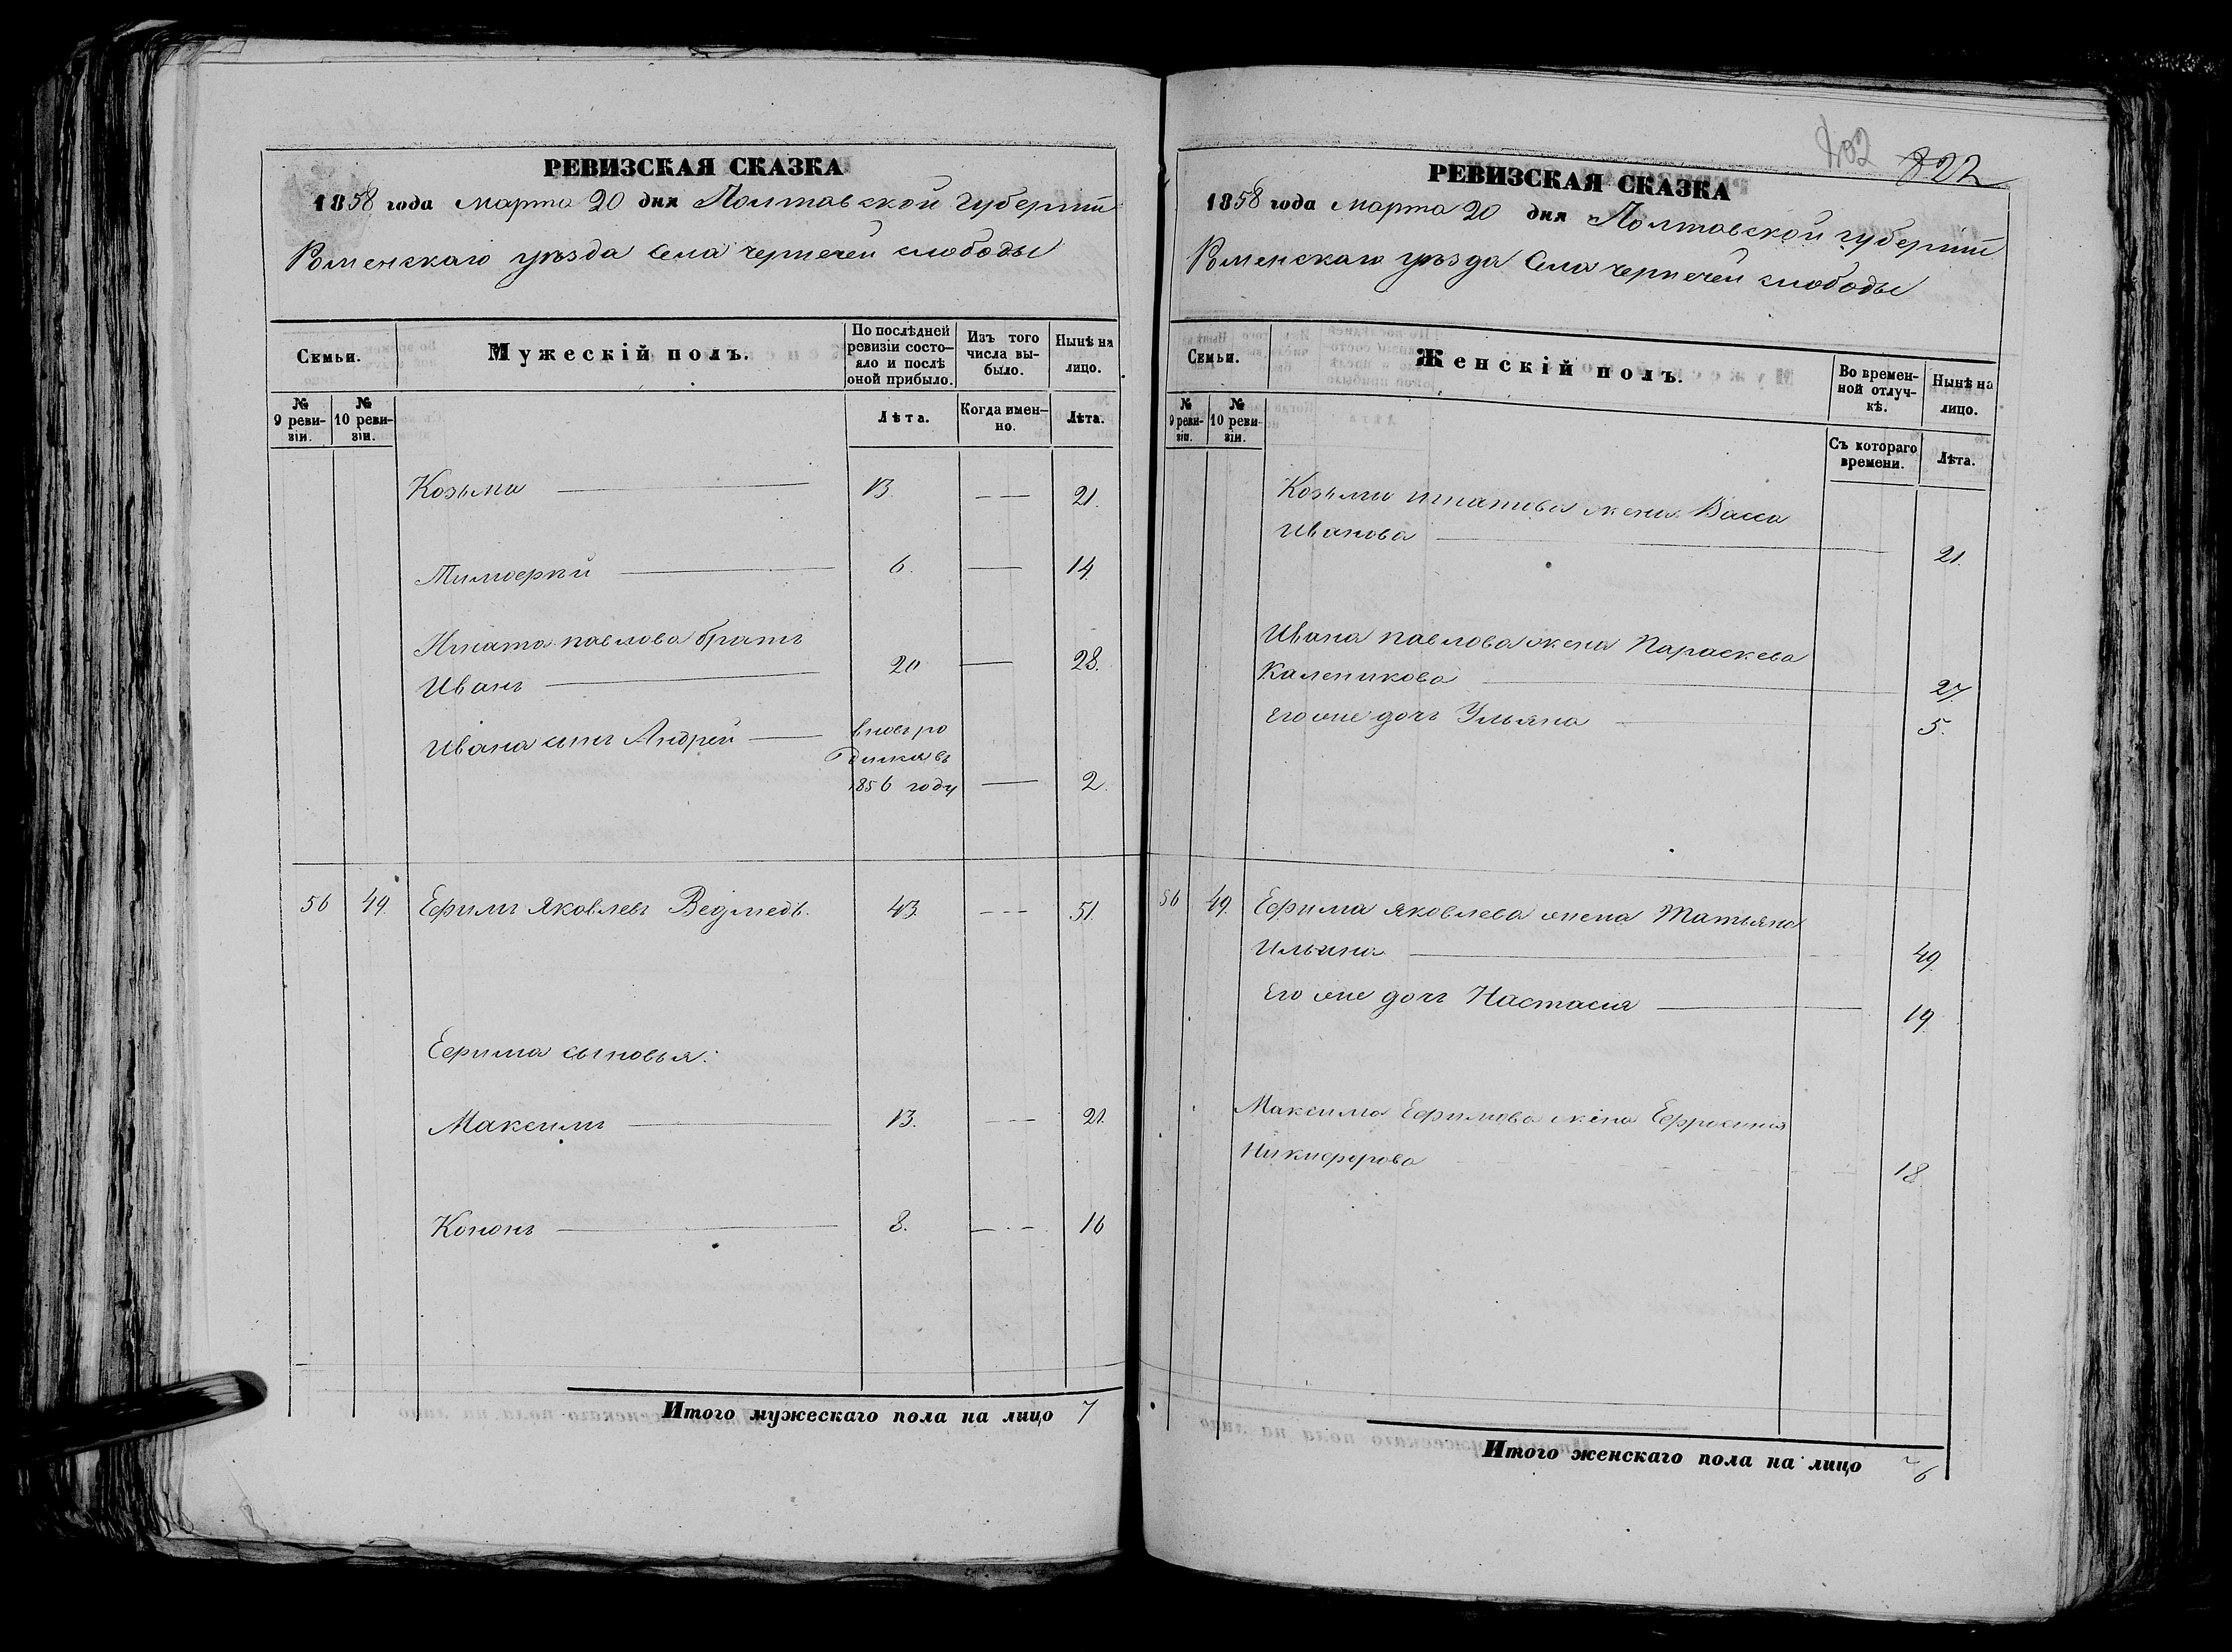 РЕВИЗСКАЯ СКАЗКА
1858 года марта 20 дня Полтавской губернии
Роменскаго уѣзда села чернечей слободы
Семьи.
Мужескій полъ.
По послѣдней ревизіи состояло и послѣ оной прибыло.
Изъ того числа выбыло.
Нынѣ на лицо.
№ 9 ревизіи.
№ 10 ревизіи.
Лѣта.
Когда именно.
Лѣта.
Козьма 13 21.
Тимофей 6. 14
Игната павлова братъ
Иванъ 20 28.
Ивана сынъ Андрей вновь ро
дился въ
1856 году 2.
56 49. Ефимъ Яковлевъ Ведмедь. 43 51.
Ефима сыновья:
Максимъ 13. 21.
Кононъ 8. 16
Итого мужескаго пола на лицо 7
822
РЕВИЗСКАЯ СКАЗКА
1858 года марта 20 дня Полтавской губерніи
Роменскаго уѣзда села чернечей слободы
Семьи.
Женскій полъ.
Во временной отлучкѣ.
Нынѣ на лицо.
№ 9 ревизіи.
№ 10 ревизіи.
Съ котораго времени.
Лѣта.
Козьмы игнатова жена Васса
Иванова 21.
Ивана павлова жена Параскева
Каленикова 27.
его же дочь Ульяна 5.
56 49. Ефима яковлева жена Татьяна
Ильина 49.
Его же дочь Настасия 19.
Максима Ефимова жена Ефросиния
Никифорова 18
Итого женскаго пола на лицо 6